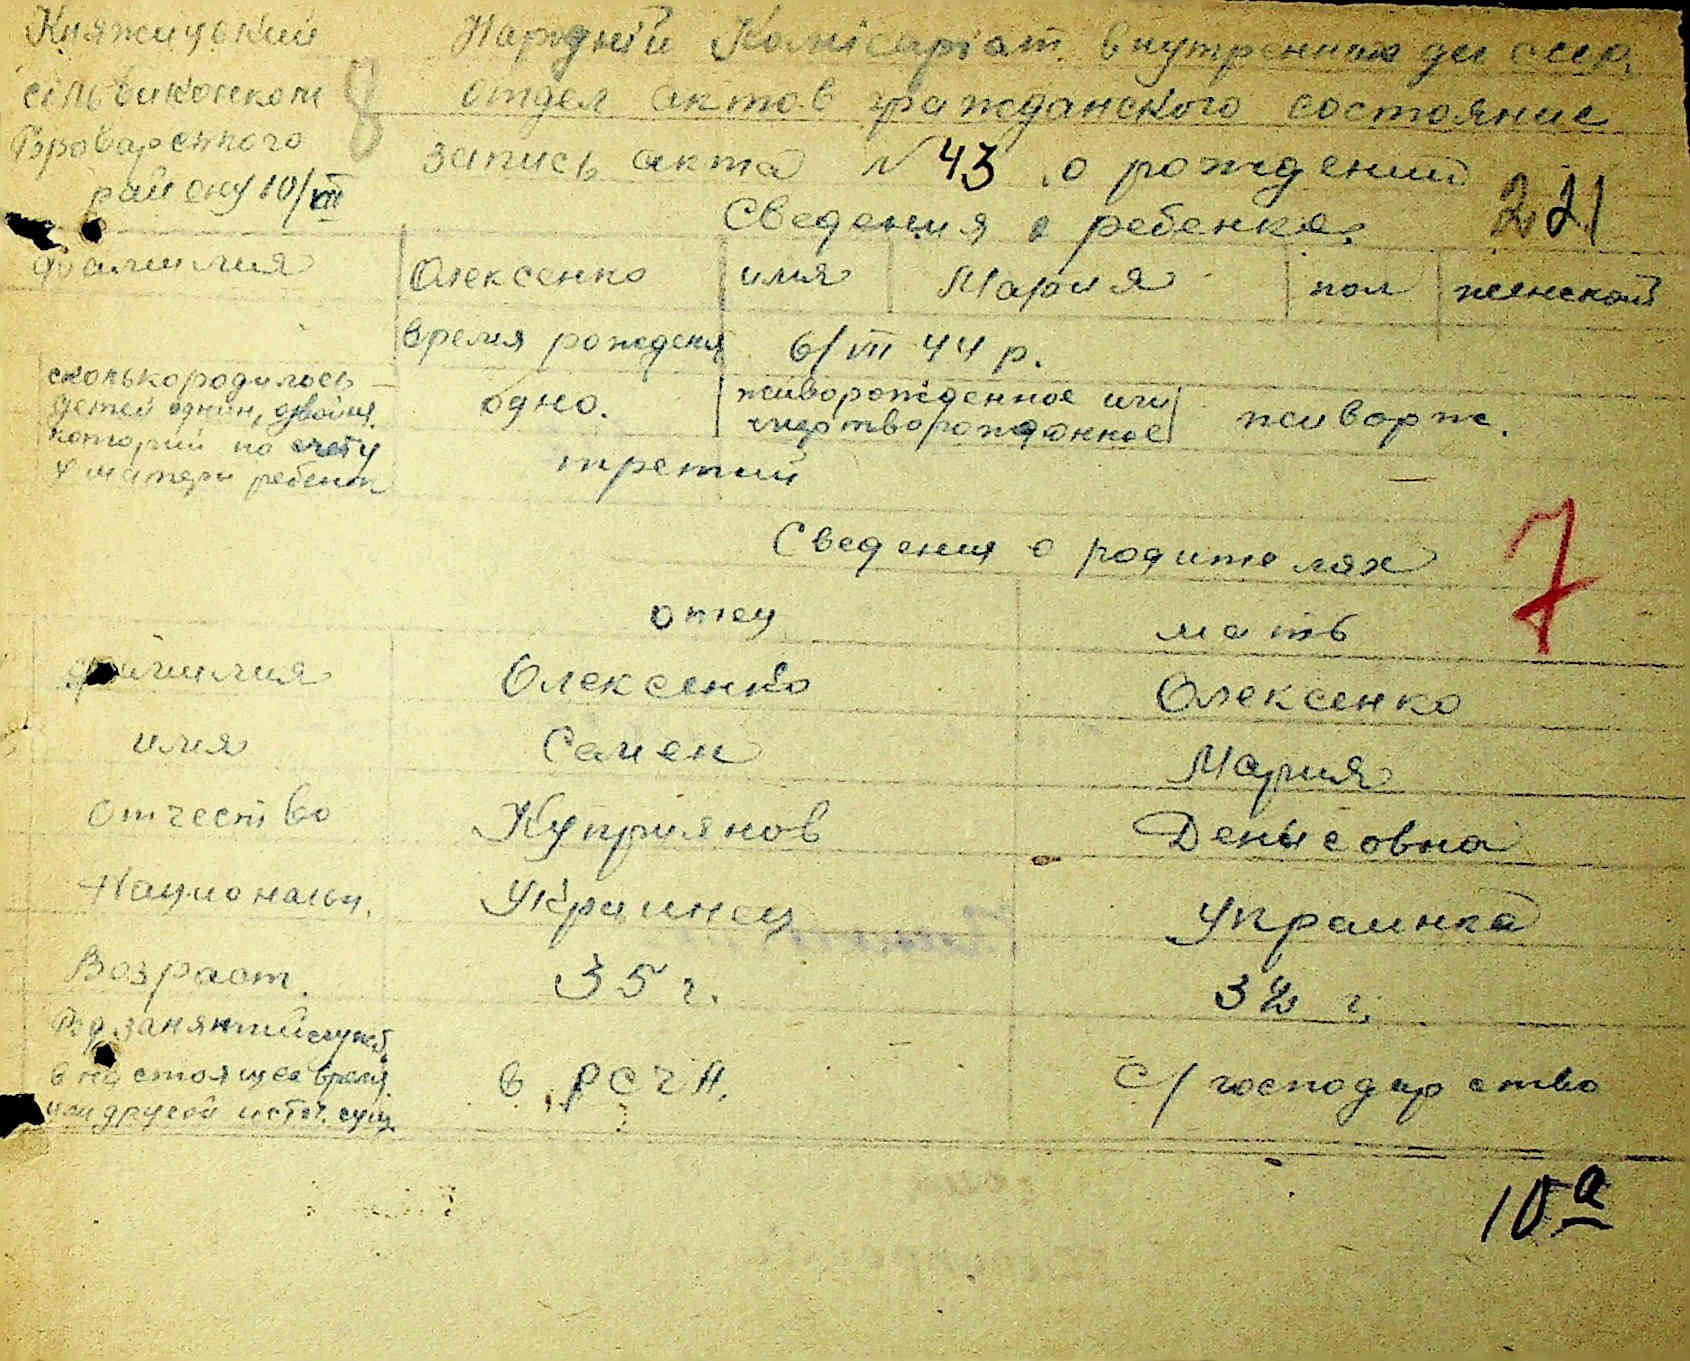 Княжицький
сільвиконком
Броварского
району 10/VIII
8
Народній Комісаріат внутренних дел ссср.
отдел актов гражданского состояние
запись акта N 43 о рождений
Сведения о ребенке.
221
фамилия Олексенко имя Мария пол женской
время рожденя 6/VII 44 р.
сколько родилось
детей однин, двойня.
который по счету
у матери ребенок
одно.
живорожденное или
мертворожданное
живорж.
третий
Сведения о родителях
7
отец мать
фамилия Олексенко Олексенко
имя Семен Мария
отчество Куприянов Денысовна
Национальн. Украинец Украинка
Возраст. 35 г. 32 г.
Род занятий служб.
в настоящее время
или другой источ. сущ.
в РСЧА. с/господарство
10а